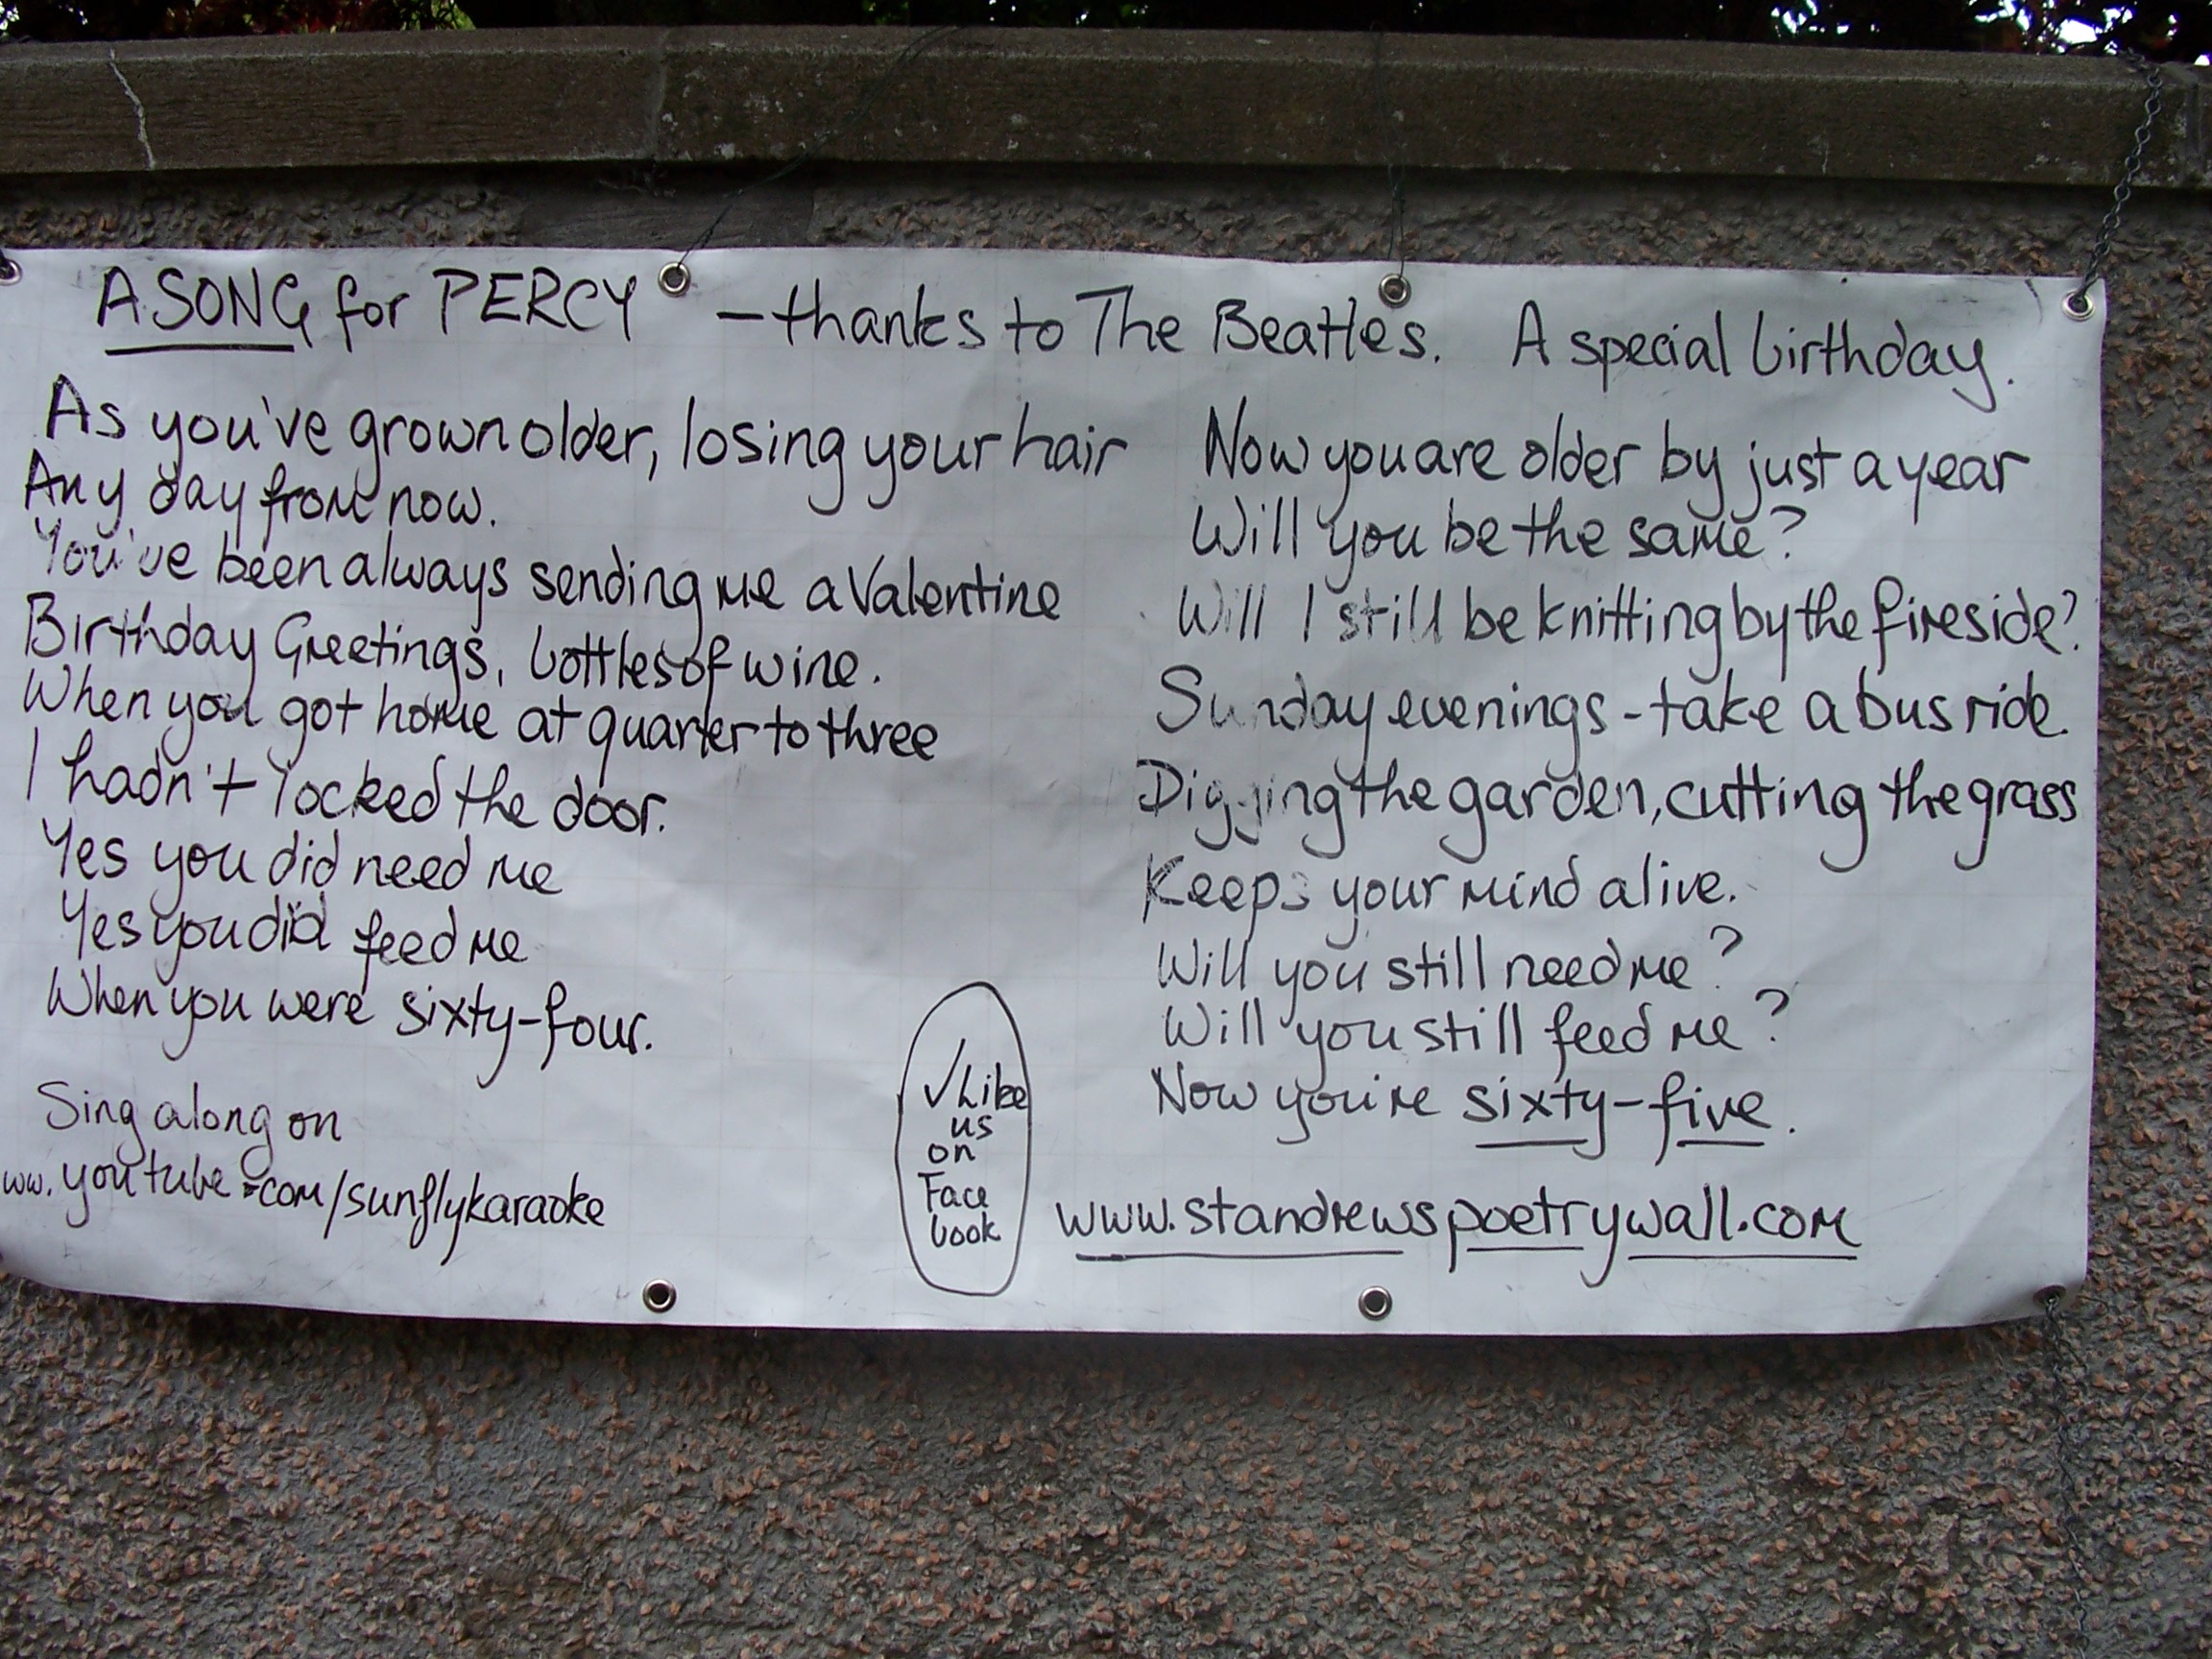 A SONG for PERCY - thanks to The Beatles. A special birthday.
As you've grown older, losing your hair
Any day from now.
You've been always sending me a Valentine
Birthday Greetings, bottles of wine.
When you got home at quarter to three
I hadn't locked the door.
Yes you did need me
Yes you did feed me
When you were sixty-four.
Sing along on
ww.youtube.com/sunflykaraoke
Now you are older by just a year
Will you be the same?
Will I still be knitting by the fireside?
Sunday evenings - take a bus ride.
Digging the garden, cutting the grass
Keeps your mind alive.
Will you still need me?
Will you still feed me?
Now you're sixty-five.
✓ Like
us
on
Face
book
www.standrewspoetrywall.com